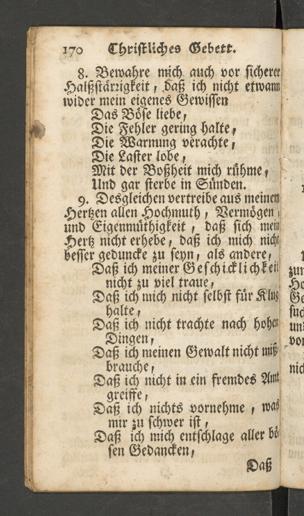 170 Christliches Gebett.
8. Bewahre mich auch vor sicherer
Halßstärrigkeit, daß ich nicht etwann
wider mein eigenes Gewissen
Das Böse liebe,
Die Fehler gering halte,
Die Warnung verachte,
Die Laster lobe,
Mit der Boßheit mich rühme,
Und gar sterbe in Sünden.
9. Desgleichen vertreibe aus meinem
Hertzen allen Hochmuth, Vermögen,
und Eigenmüthigkeit, daß sich mein
Hertz nicht erhebe, daß ich mich nicht
besser geduncke zu seyn, als andere,
Daß ich meiner Geschicklichkeit
nicht zu viel traue,
Daß ich mich nicht selbst für Klug
halte,
Daß ich nicht trachte nach hohen
Dingen,
Daß ich meinen Gewalt nicht miß-
brauche,
Daß ich nicht in ein fremdes Amt
greiffe,
Daß ich nichts vornehme, was
mir zu schwer ist,
Daß ich mich entschlage aller bö-
sen Gedancken,
Daß